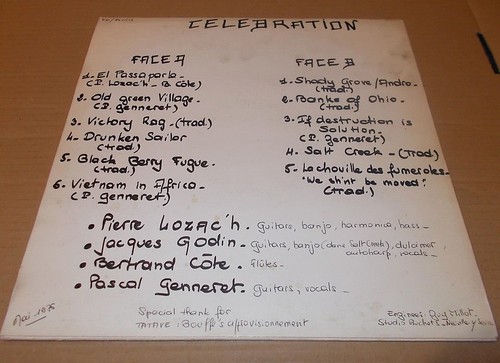 CELEBRATION
FACE A
1. El Passaparla -
(P. Lozac'h - B. Côte)
2. Old green Village -
(P. genneret)
3. Victory Rag - (trad.)
4. Drunken Sailor
(trad.)
5. Black Berry Fugue -
(trad.)
6. Vietnam in Africa -
(P. genneret)
FACE B
1. Shady Grove / Andro -
(trad.)
2. Banks of Ohio -
(trad.)
3. If destruction is
Solution -
(P. genneret)
4. Salt Creek - (Trad)
5. La chouille des fumeroles -
"We sh'nt be moved"
(trad.)
• Pierre Lozac'h - guitars, banjo, harmonica, bass -
• Jacques Godin - guitars, banjo (dans Salt Creek), dulcimer,
autoharp, vocals -
• Bertrand Côte - flûtes -
• Pascal Genneret - guitars, vocals -
Mai 1976
Special thank for
TATAVE : Bouffe's approvisionnement
Engineer: Guy Millot
Studio